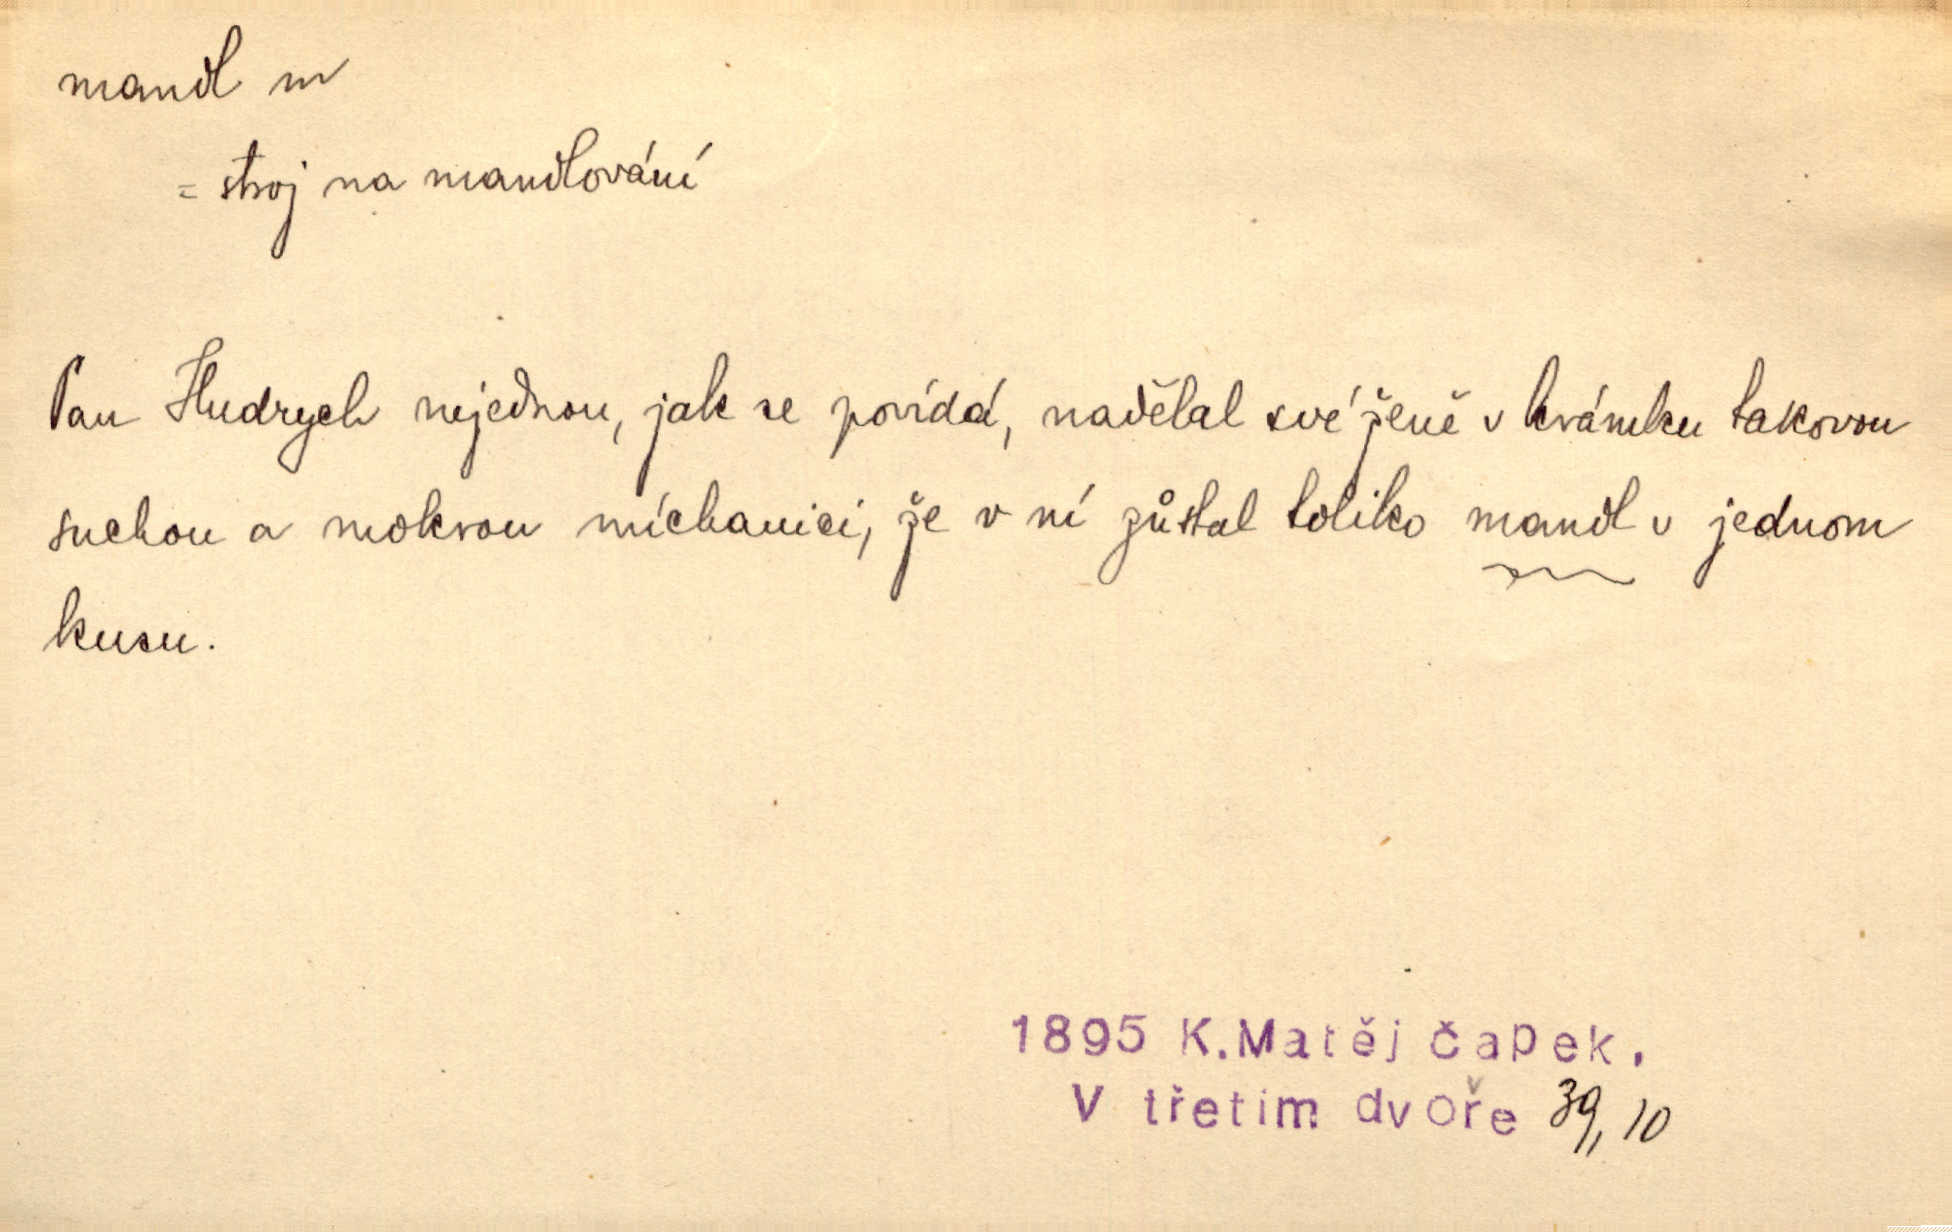 mandl m
= stroj na mandlování
Pan Hudrych nejednou, jak se povídá, nadělal své ženě v krámku takovou
suchou a mokrou míchanici, že v ní zůstal toliko mandl v jednom
kusu.
1895 K.Matěj Čapek.
V třetím dvoře 39, 10